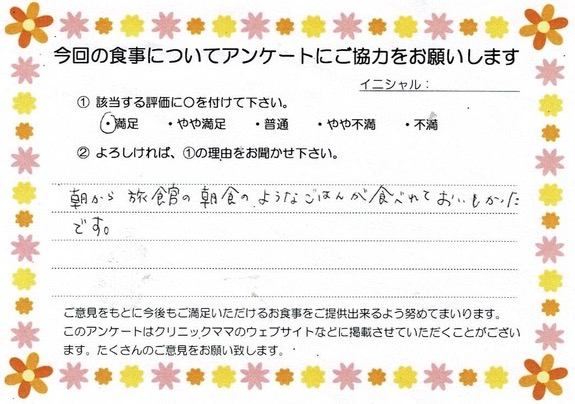 今回の食事についてアンケートにご協力をお願いします
イニシャル：
① 該当する評価に〇を付けて下さい。
・満足 ・やや満足 ・普通 ・やや不満 ・不満
② よろしければ、①の理由をお聞かせ下さい。
朝から 旅館の朝食の ようなごはんが食べれておいしかった
です。
ご意見をもとに今後もご満足いただけるお食事をご提供出来るよう努めてまいります。
このアンケートはクリニックママのウェブサイトなどに掲載させていただくことがござい
ます。たくさんのご意見をお願い致します。